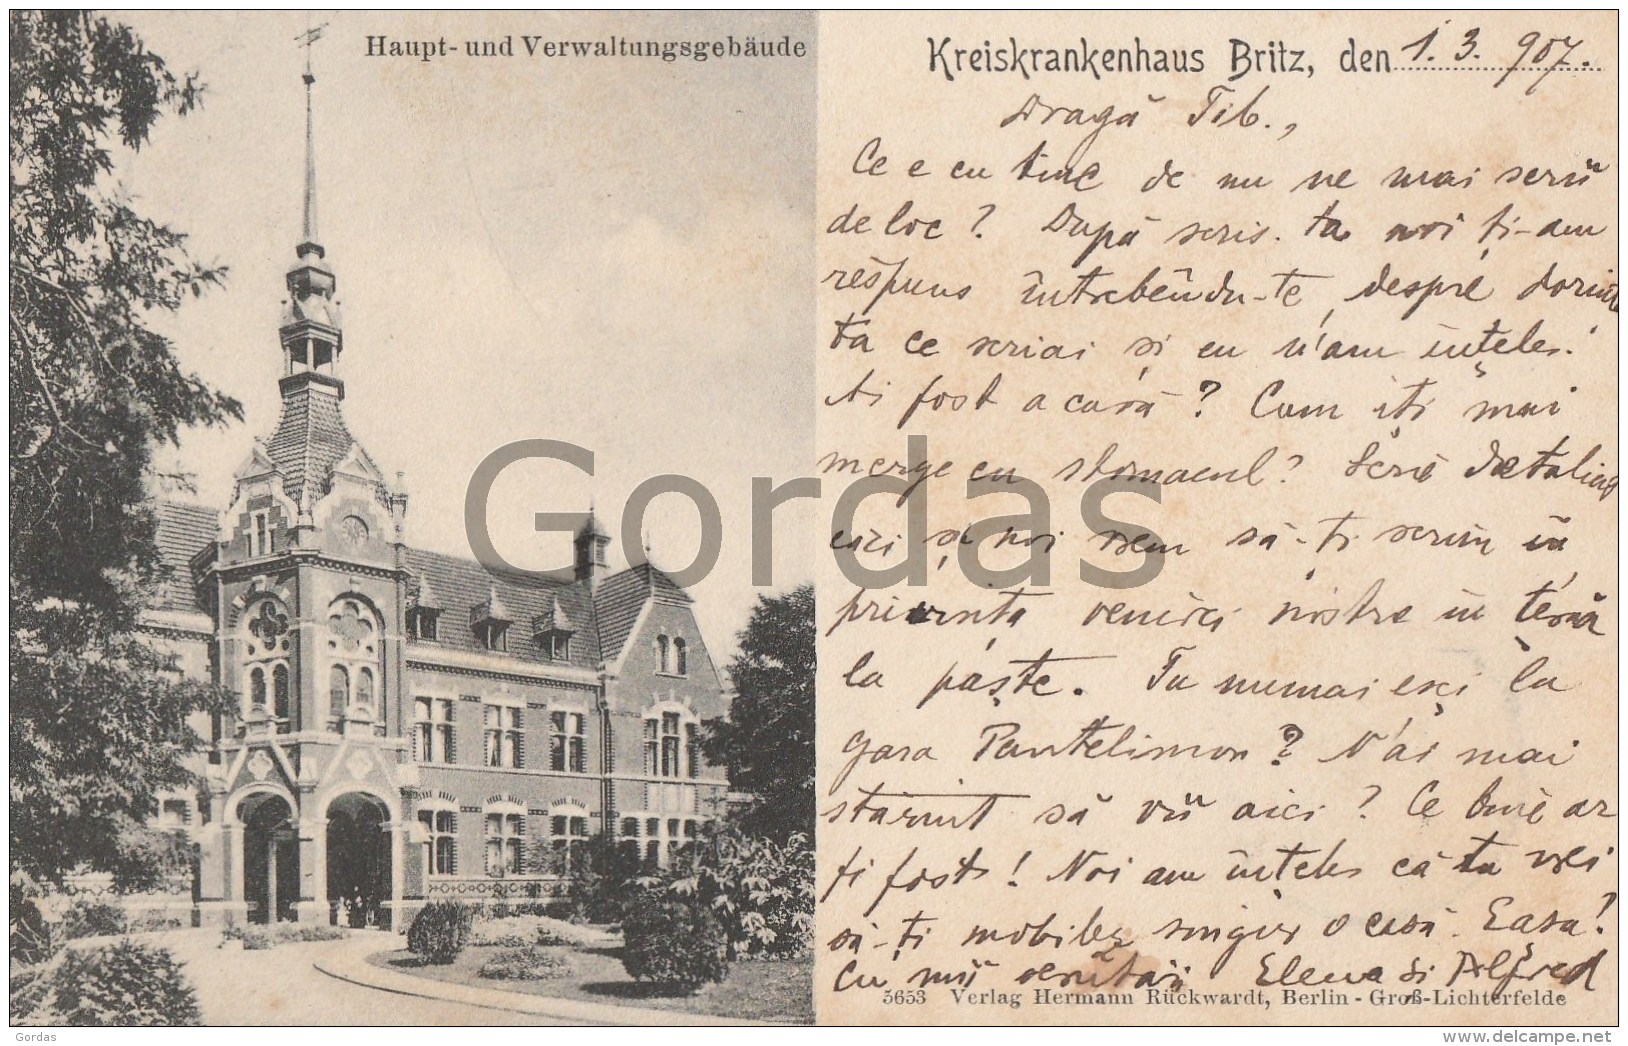 Haupt- und Verwaltungsgebäude
Kreiskrankenhaus Britz, den 1. 3. 907.
Dragă Tib.,
Ce e cu tine de nu ne mai scrii
de loc? După scris. ta noi ți-am
respuns întrebêndu-te despre dorința
ta ce scriai și eu n'am înțeles.
Ai fost acasă? Cum iți mai
merge cu stomacul? Scrie detalia
aici și noi vom să-ți scrim în
privința venirei nóstre în téră
la paște. Tu numai ești la
gara Pantelimon? N'ai mai
stăruit să vii aici? Ce bine ar
fi fost! Noi am înțeles că tu vrei
să-ți mobilez singur o casă. Easa?
Cu mii sărutări Elena și Alfred
5653 Verlag Hermann Rückwardt, Berlin - Groß-Lichterfelde
Gordas
Gordas
www.delcampe.net